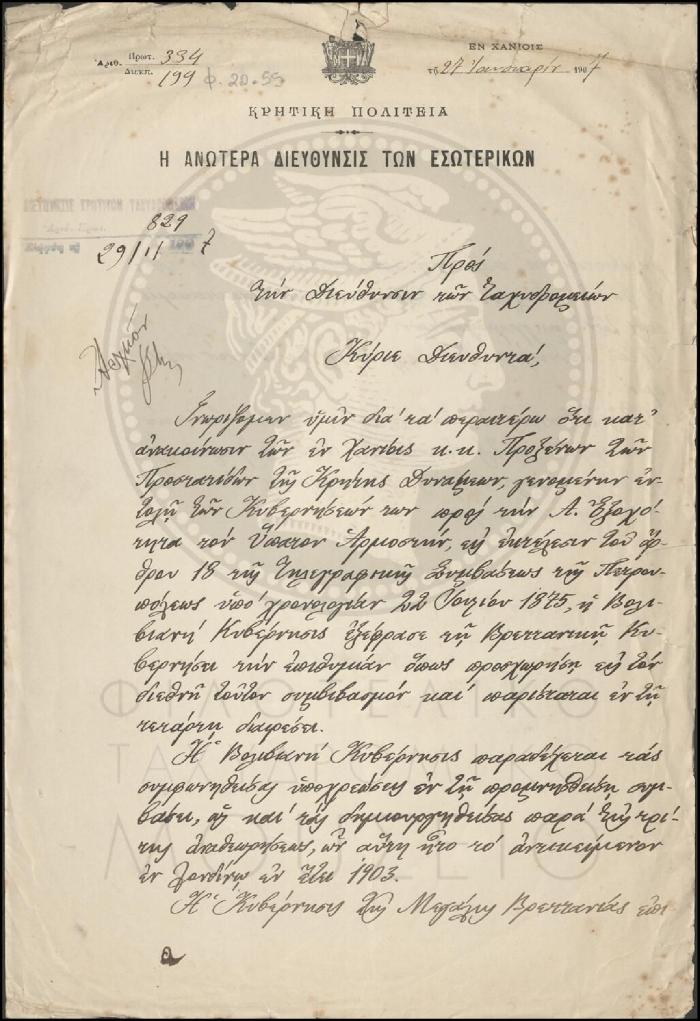 Ἀριθ. Πρωτ. 334
Διεκπ. 199 φ. 20-99
ΕΝ ΧΑΝΙΟΙΣ
τῇ 27 Ἰανουαρίου 1907
ΚΡΗΤΙΚΗ ΠΟΛΙΤΕΙΑ
Η ΑΝΩΤΕΡΑ ΔΙΕΥΘΥΝΣΙΣ ΤΩΝ ΕΣΩΤΕΡΙΚΩΝ
ΔΙΕΥΘΥΝΣΙΣ ΚΡΗΤΙΚΩΝ
829
29/1/ 1907
Πρός
τὴν Διεύθυνσιν τῶν Ταχυδρομείων
Κύριε Διευθυντά,
Γνωρίζομεν ὑμῖν διὰ τὰ περαιτέρω ὅτι κατ'
ἀνακοίνωσιν τῶν ἐν Χανίοις κ.κ. Προξένων τῶν
Προστατίδων τῆς Κρήτης Δυνάμεων, γενομένην ἐν-
τολῇ τῶν Κυβερνήσεών των πρὸς τὴν Α. Ἐξοχό-
τητα τὸν Ὕπατον Ἁρμοστήν, εἰς ἐκτέλεσιν τοῦ ἄρ-
θρου 18 τῆς Τηλεγραφικῆς Συμβάσεως τῆς Πετρου-
πόλεως ὑπὸ χρονολογίαν 22 Ἰουλίου 1875, ἡ Βολι-
βιανὴ Κυβέρνησις ἐξέφρασε τῇ Βρεττανικῇ Κυ-
βερνήσει τὴν ἐπιθυμίαν ὅπως προσχωρήσῃ εἰς τὸν
διεθνῆ τοῦτον συμβιβασμὸν καὶ παρίσταται ἐν τῇ
τετάρτῃ διαιρέσει.
Ἡ Βολιβιανὴ Κυβέρνησις παραδέχεται τὰς
συμφωνηθείσας ὑποχρεώσεις ἐν τῇ προμνησθείσῃ συμ-
βάσει, ὡς καὶ τὰς δημιουργηθείσας παρὰ τῆς τρί-
της ἀναθεωρήσεως, ἧς αὕτη ἦτο τὸ ἀντικείμενον
ἐν Λονδίνῳ ἐν ἔτει 1903.
Ἡ Κυβέρνησις τῆς Μεγάλης Βρεττανίας ἐπι-
a
ΦΙΛΟΤΕΛΙΚΟ
ΤΑΧΥΔΡΟΜΙΚΟ
ΜΟΥΣΕΙΟ